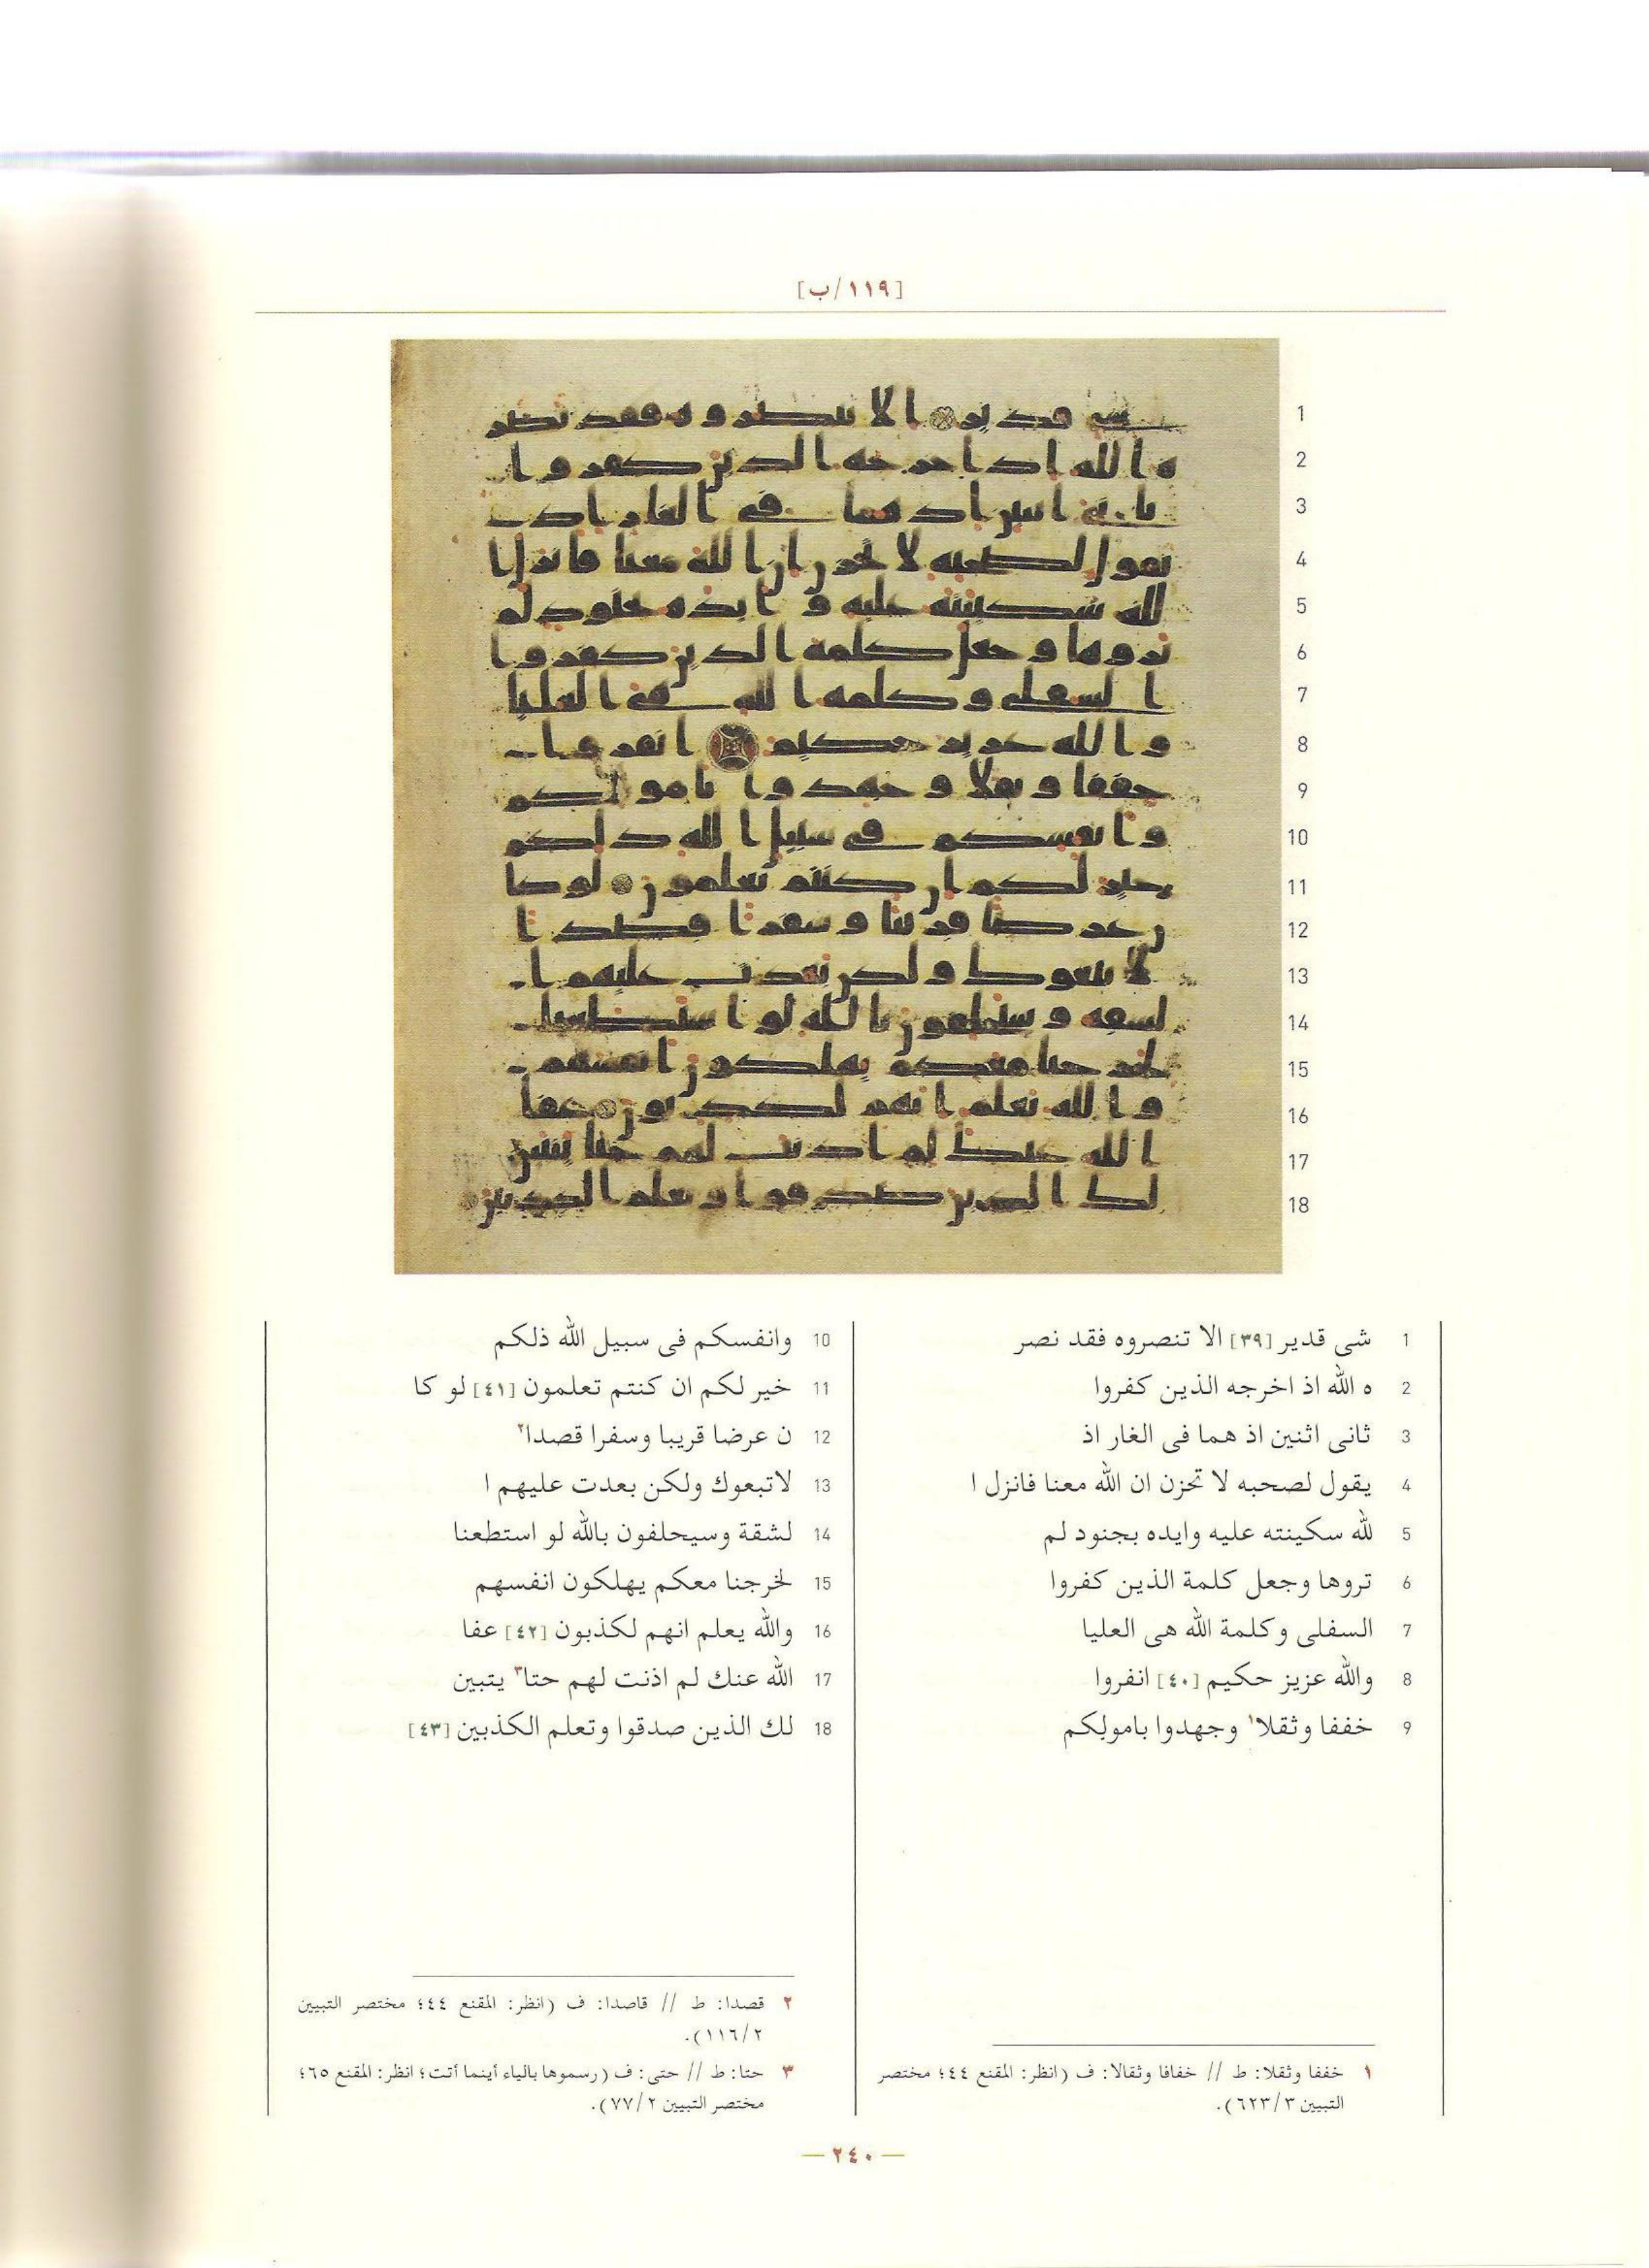 [١١٩/ب]
1 شى قدير [٣٩] الا تنصروه فقد نصر
2 ه الله اذ اخرجه الذين كفروا
3 ثانى اثنين اذ هما فى الغار اذ
4 يقول لصحبه لا تحزن ان الله معنا فانزل ا
5 لله سكينته عليه وايده بجنود لم
6 تروها وجعل كلمة الذين كفروا
7 السفلى وكلمة الله هى العليا
8 والله عزيز حكيم [٤٠] انفروا
9 خففا وثقلا١ وجهدوا بامولكم
10 وانفسكم فى سبيل الله ذلكم
11 خير لكم ان كنتم تعلمون [٤١] لو كا
12 ن عرضا قريبا وسفرا قصدا٢
13 لاتبعوك ولكن بعدت عليهم ا
14 لشقة وسيحلفون بالله لو استطعنا
15 لخرجنا معكم يهلكون انفسهم
16 والله يعلم انهم لكذبون [٤٢] عفا
17 الله عنك لم اذنت لهم حتا٣ يتبين
18 لك الذين صدقوا وتعلم الكذبين [٤٣]
١ خففا وثقلا: ط // خفافا وثقالا: ف (انظر: المقنع ٤٤؛ مختصر
التبيين ٦٢٣/٣).
٢ قصدا: ط // قاصدا: ف (انظر: المقنع ٤٤؛ مختصر التبيين
١١٦/٢).
٣ حتا: ط // حتى: ف (رسموها بالياء أينما أتت؛ انظر: المقنع ٦٥؛
مختصر التبيين ٧٧/٢).
— ٢٤٠ —